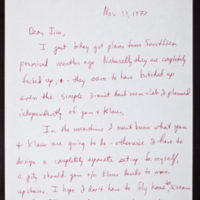 Nov 17, 1977
Dear Jim,
I just today got plans from Smithson
promised months ago. Naturally they are completely
fucked up, & they seem to have botched up
even the simple 3-unit dark room-lab I planned
independently of you & Klaus.
In the meantime I must know what you
& Klaus are going to do - otherwise I have to
design a completely separate set-up for myself,
a pity should you &/or Klaus decide to work
upstairs. I hope I don't have to fly home